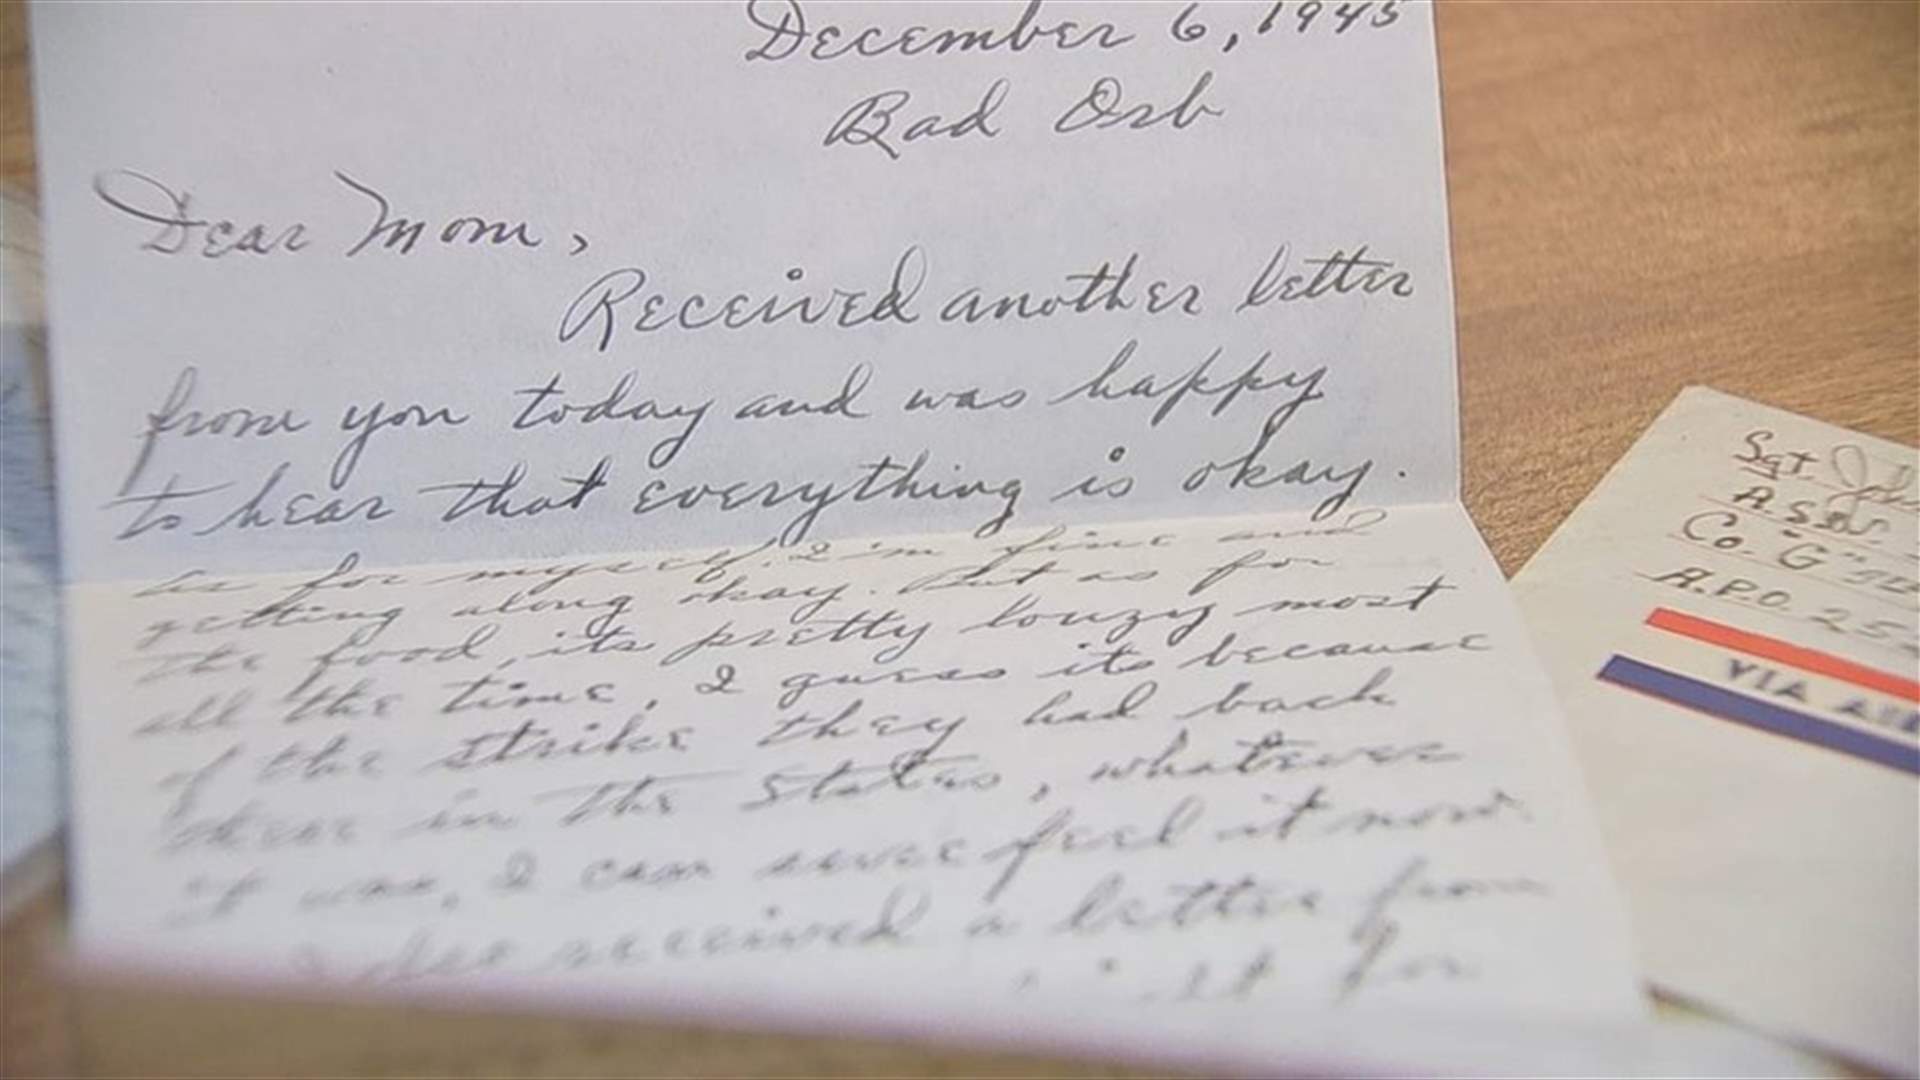 December 6, 1945
Bad Orb
Dear Mom,
Received another letter
from you today and was happy
to hear that everything is okay.
As for myself, I'm fine and
getting along okay. But as for
the food, its pretty louzy most
all the time, I guess its because
of the strike they had back
there in the States, whatever
it was, I can sure feel it now.
I also received a letter from
it for
Sgt John
A.S.N.
Co. "G"
A.P.O. 25
VIA AIR